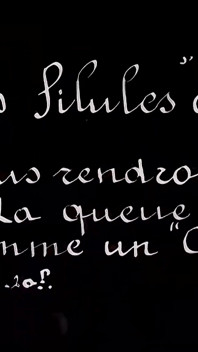 s Pilules d
us rendro
la queue
omme un "C